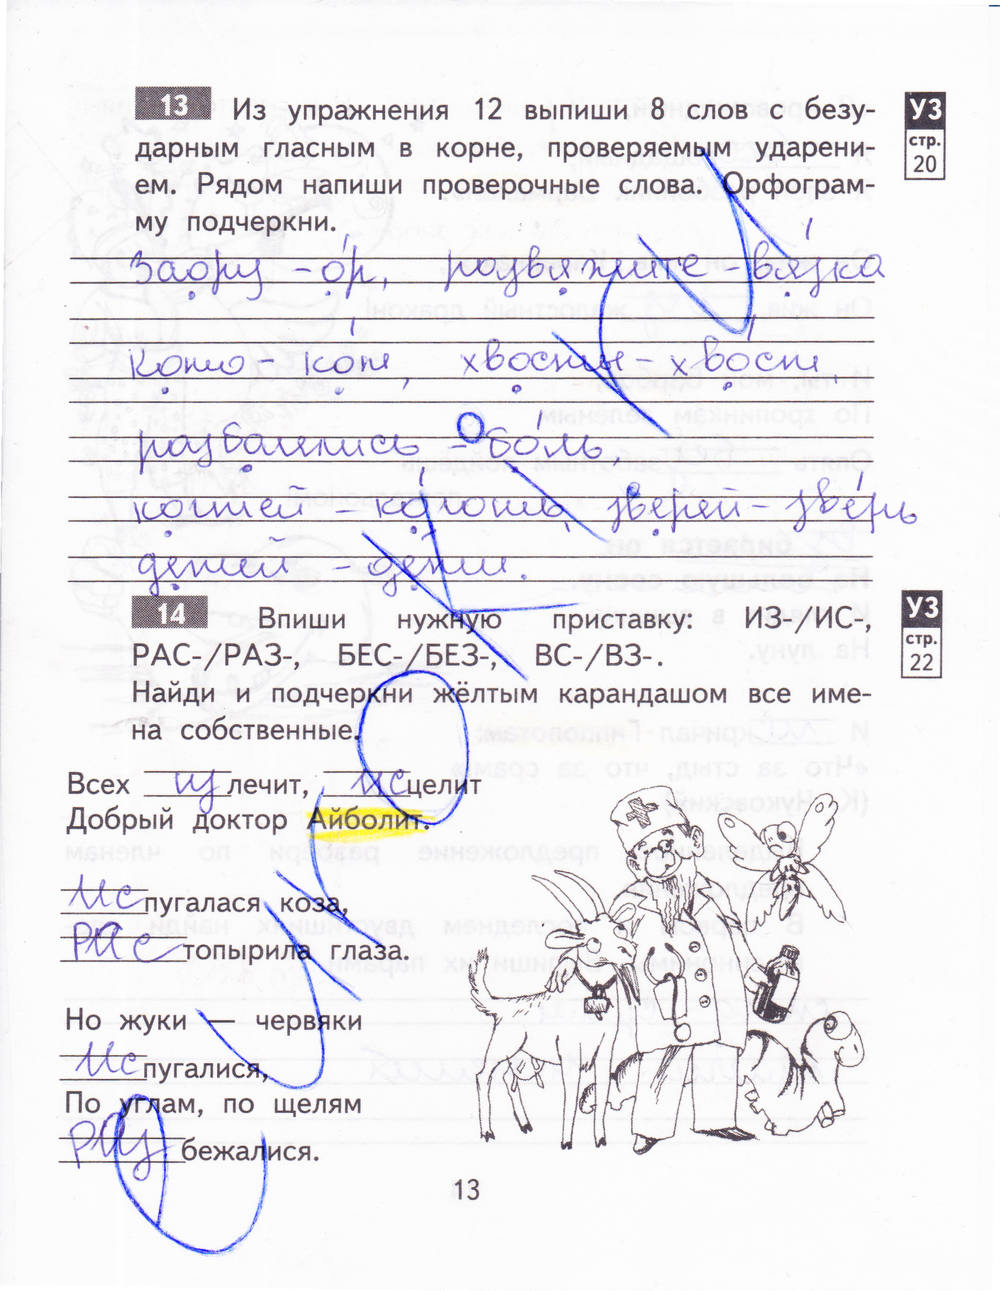 13 Из упражнения 12 выпиши 8 слов с безу-
дарным гласным в корне, проверяемым ударени-
ем. Рядом напиши проверочные слова. Орфограм-
му подчеркни.
УЗ
стр.
20
Заору - о́р, развяжите - вя́зка
кото - ко́т, хвосты - хво́ст,
разболелись - бо́ль,
когтей - ко́готь, зверей - зве́рь
детей - дети.
14 Впиши нужную приставку: ИЗ-/ИС-,
РАС-/РАЗ-, БЕС-/БЕЗ-, ВС-/ВЗ-.
Найди и подчеркни жёлтым карандашом все име-
на собственные.
УЗ
стр.
22
Всех излечит, исцелит
Добрый доктор Айболит.
Испугалася коза,
Растопырила глаза.
Но жуки — червяки
Испугалися,
По углам, по щелям
Разбежалися.
13